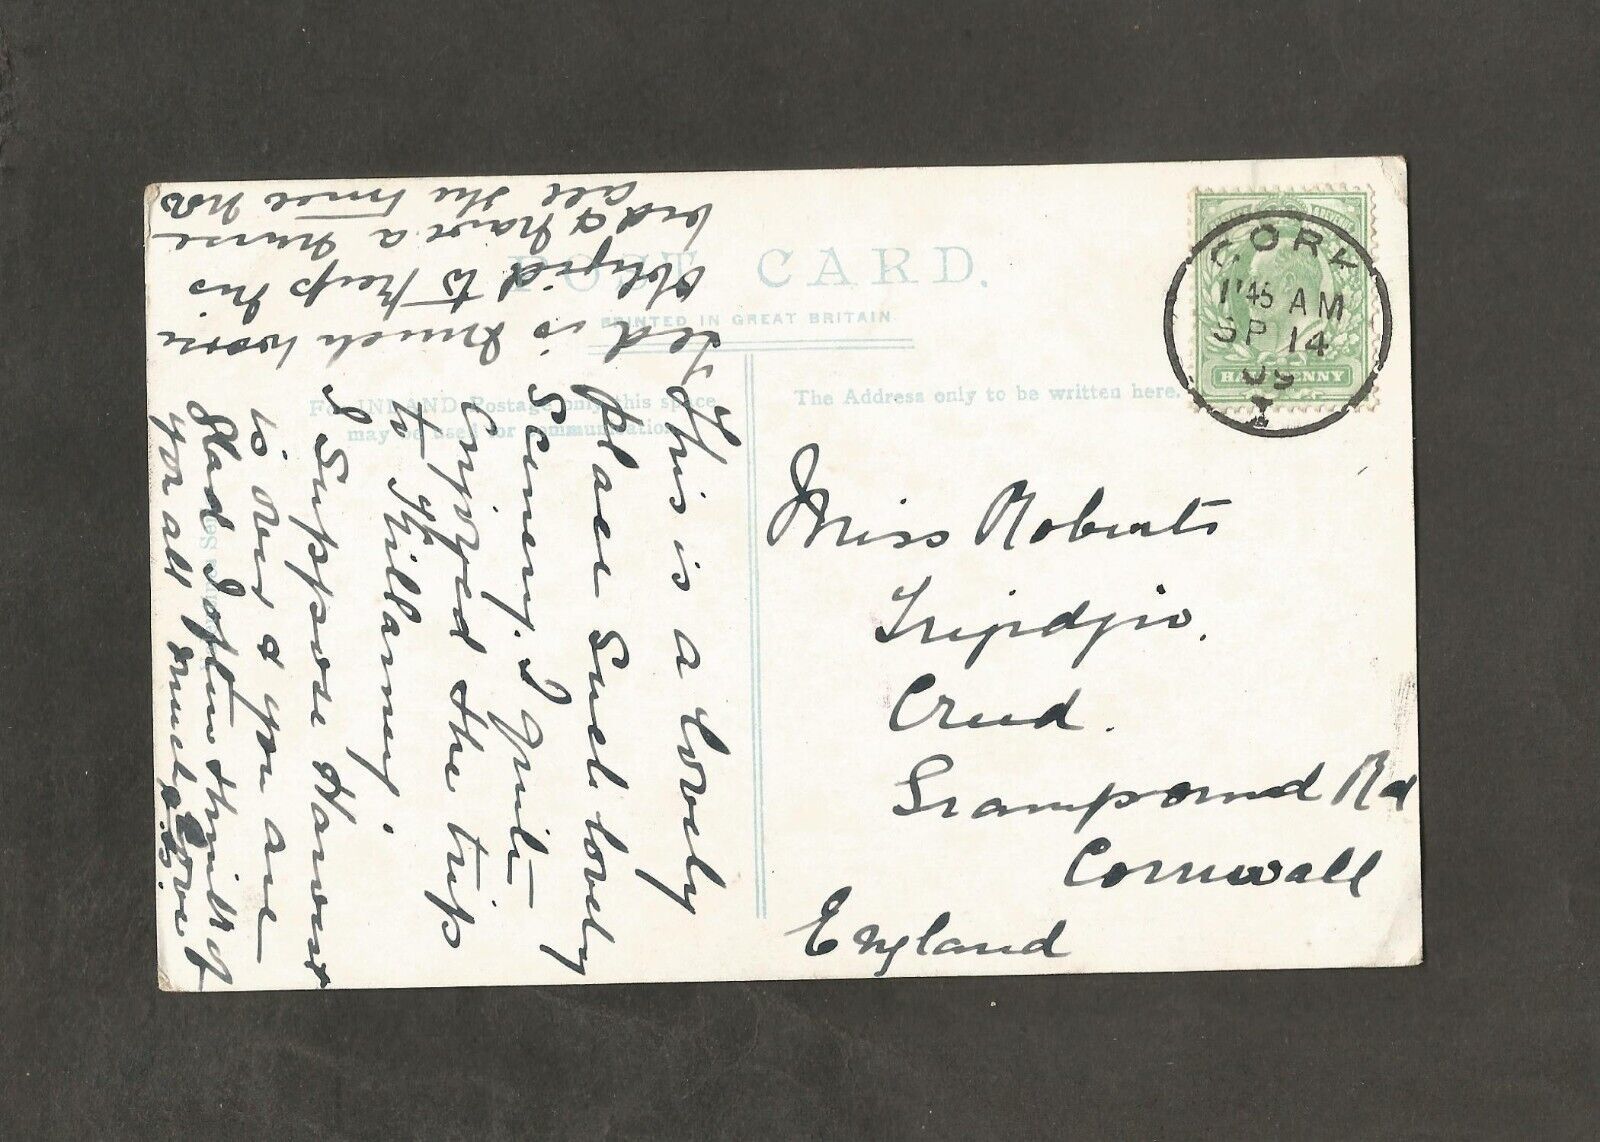 POST CARD.
PRINTED IN GREAT BRITAIN
For INLAND Postage only this space
may be used for communication.
The Address only to be written here.
CORK
11.45 AM
SP 14
09
HALFPENNY
Miss Roberts
Creed.
Grampound Rd
Cornwall
England
This is a lovely
place Such lovely
Scenery. I quite
enjoyed the trip
to Killarney.
I Suppose Harvest
is over & you are
Glad I often think of
you all much love
Ted is much worse
Obliged to keep his
bed & have a nurse
all the time